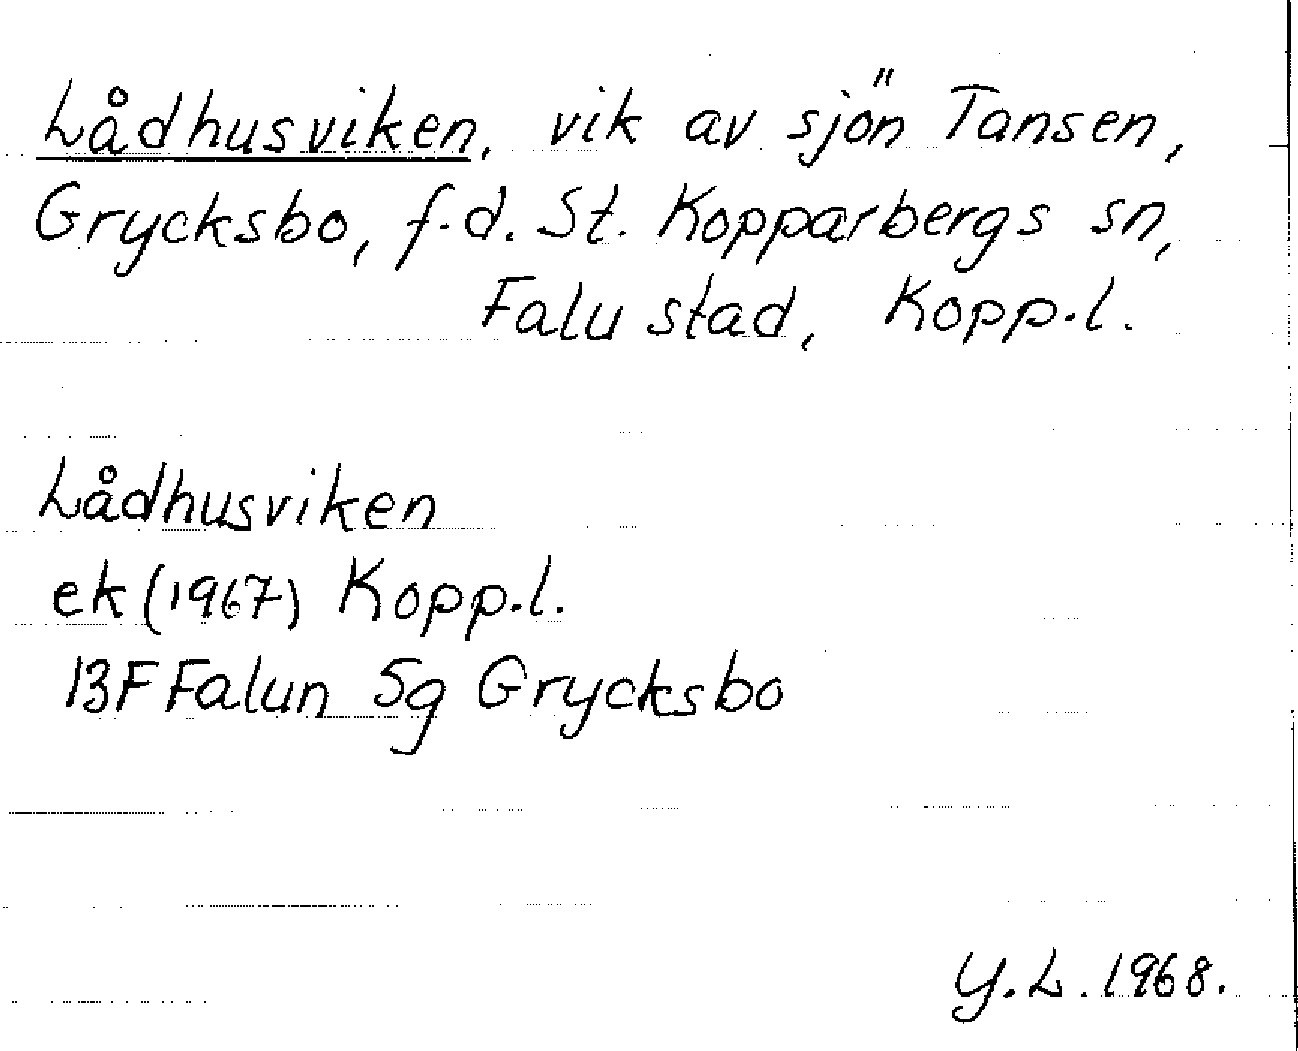 Lådhusviken, vik av sjön Tansen,
Grycksbo, f.d. St. Kopparbergs sn,
Falu stad, Kopp.l.
Lådhusviken
ek (1967) Kopp.l.
13F Falun 5g Grycksbo
Y.L. 1968.